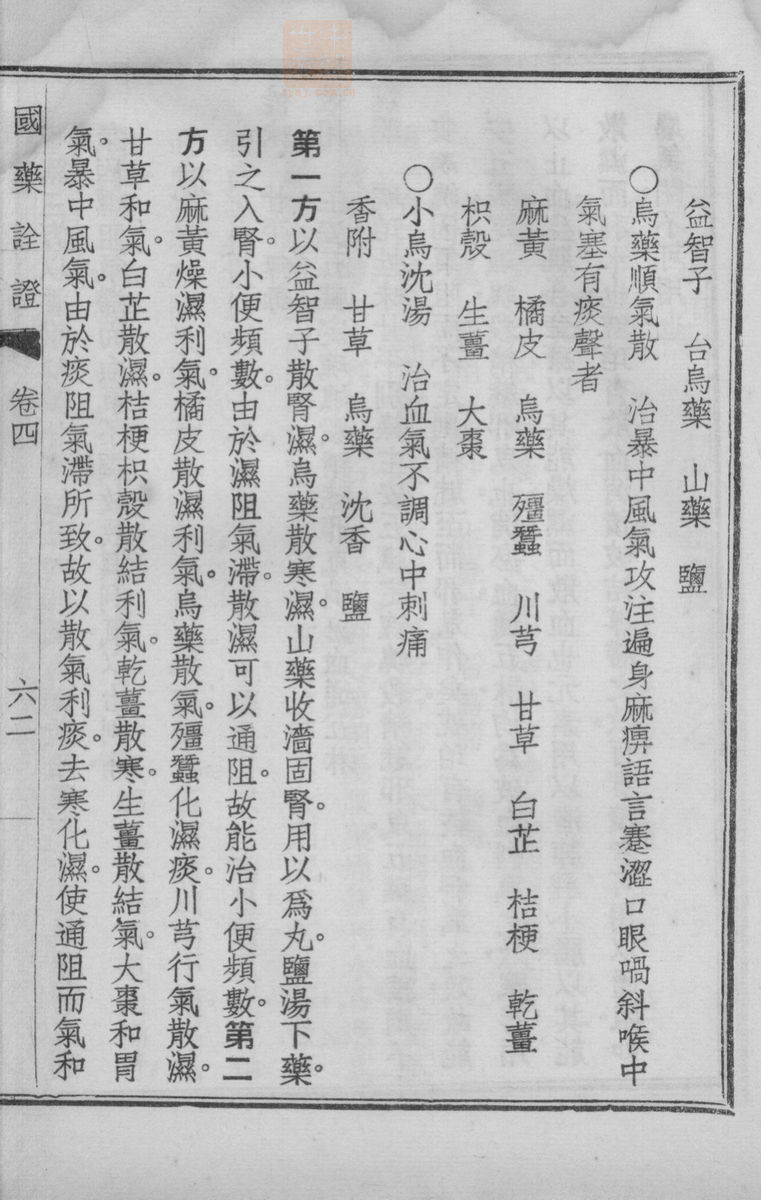 益智子　台烏藥　山藥　鹽
○烏藥順氣散　治暴中風氣攻注遍身麻痹語言蹇澀口眼喎斜喉中
氣塞有痰聲者
麻黃　橘皮　烏藥　殭蠶　川芎　甘草　白芷　桔梗　乾薑
枳殼　生薑　大棗
○小烏沈湯　治血氣不調心中刺痛
香附　甘草　烏藥　沈香　鹽
第一方以益智子散腎濕。烏藥散寒濕。山藥收濇固腎。用以爲丸。鹽湯下藥。
引之入腎。小便頻數。由於濕阻氣滯。散濕可以通阻。故能治小便頻數。第二
方以麻黃燥濕利氣。橘皮散濕利氣。烏藥散氣。殭蠶化濕痰。川芎行氣散濕。
甘草和氣。白芷散濕。桔梗枳殼散結利氣。乾薑散寒。生薑散結氣。大棗和胃
氣。暴中風氣。由於痰阻氣滯所致。故以散氣利痰。去寒化濕。使通阻而氣和
國藥詮證
卷四
六二